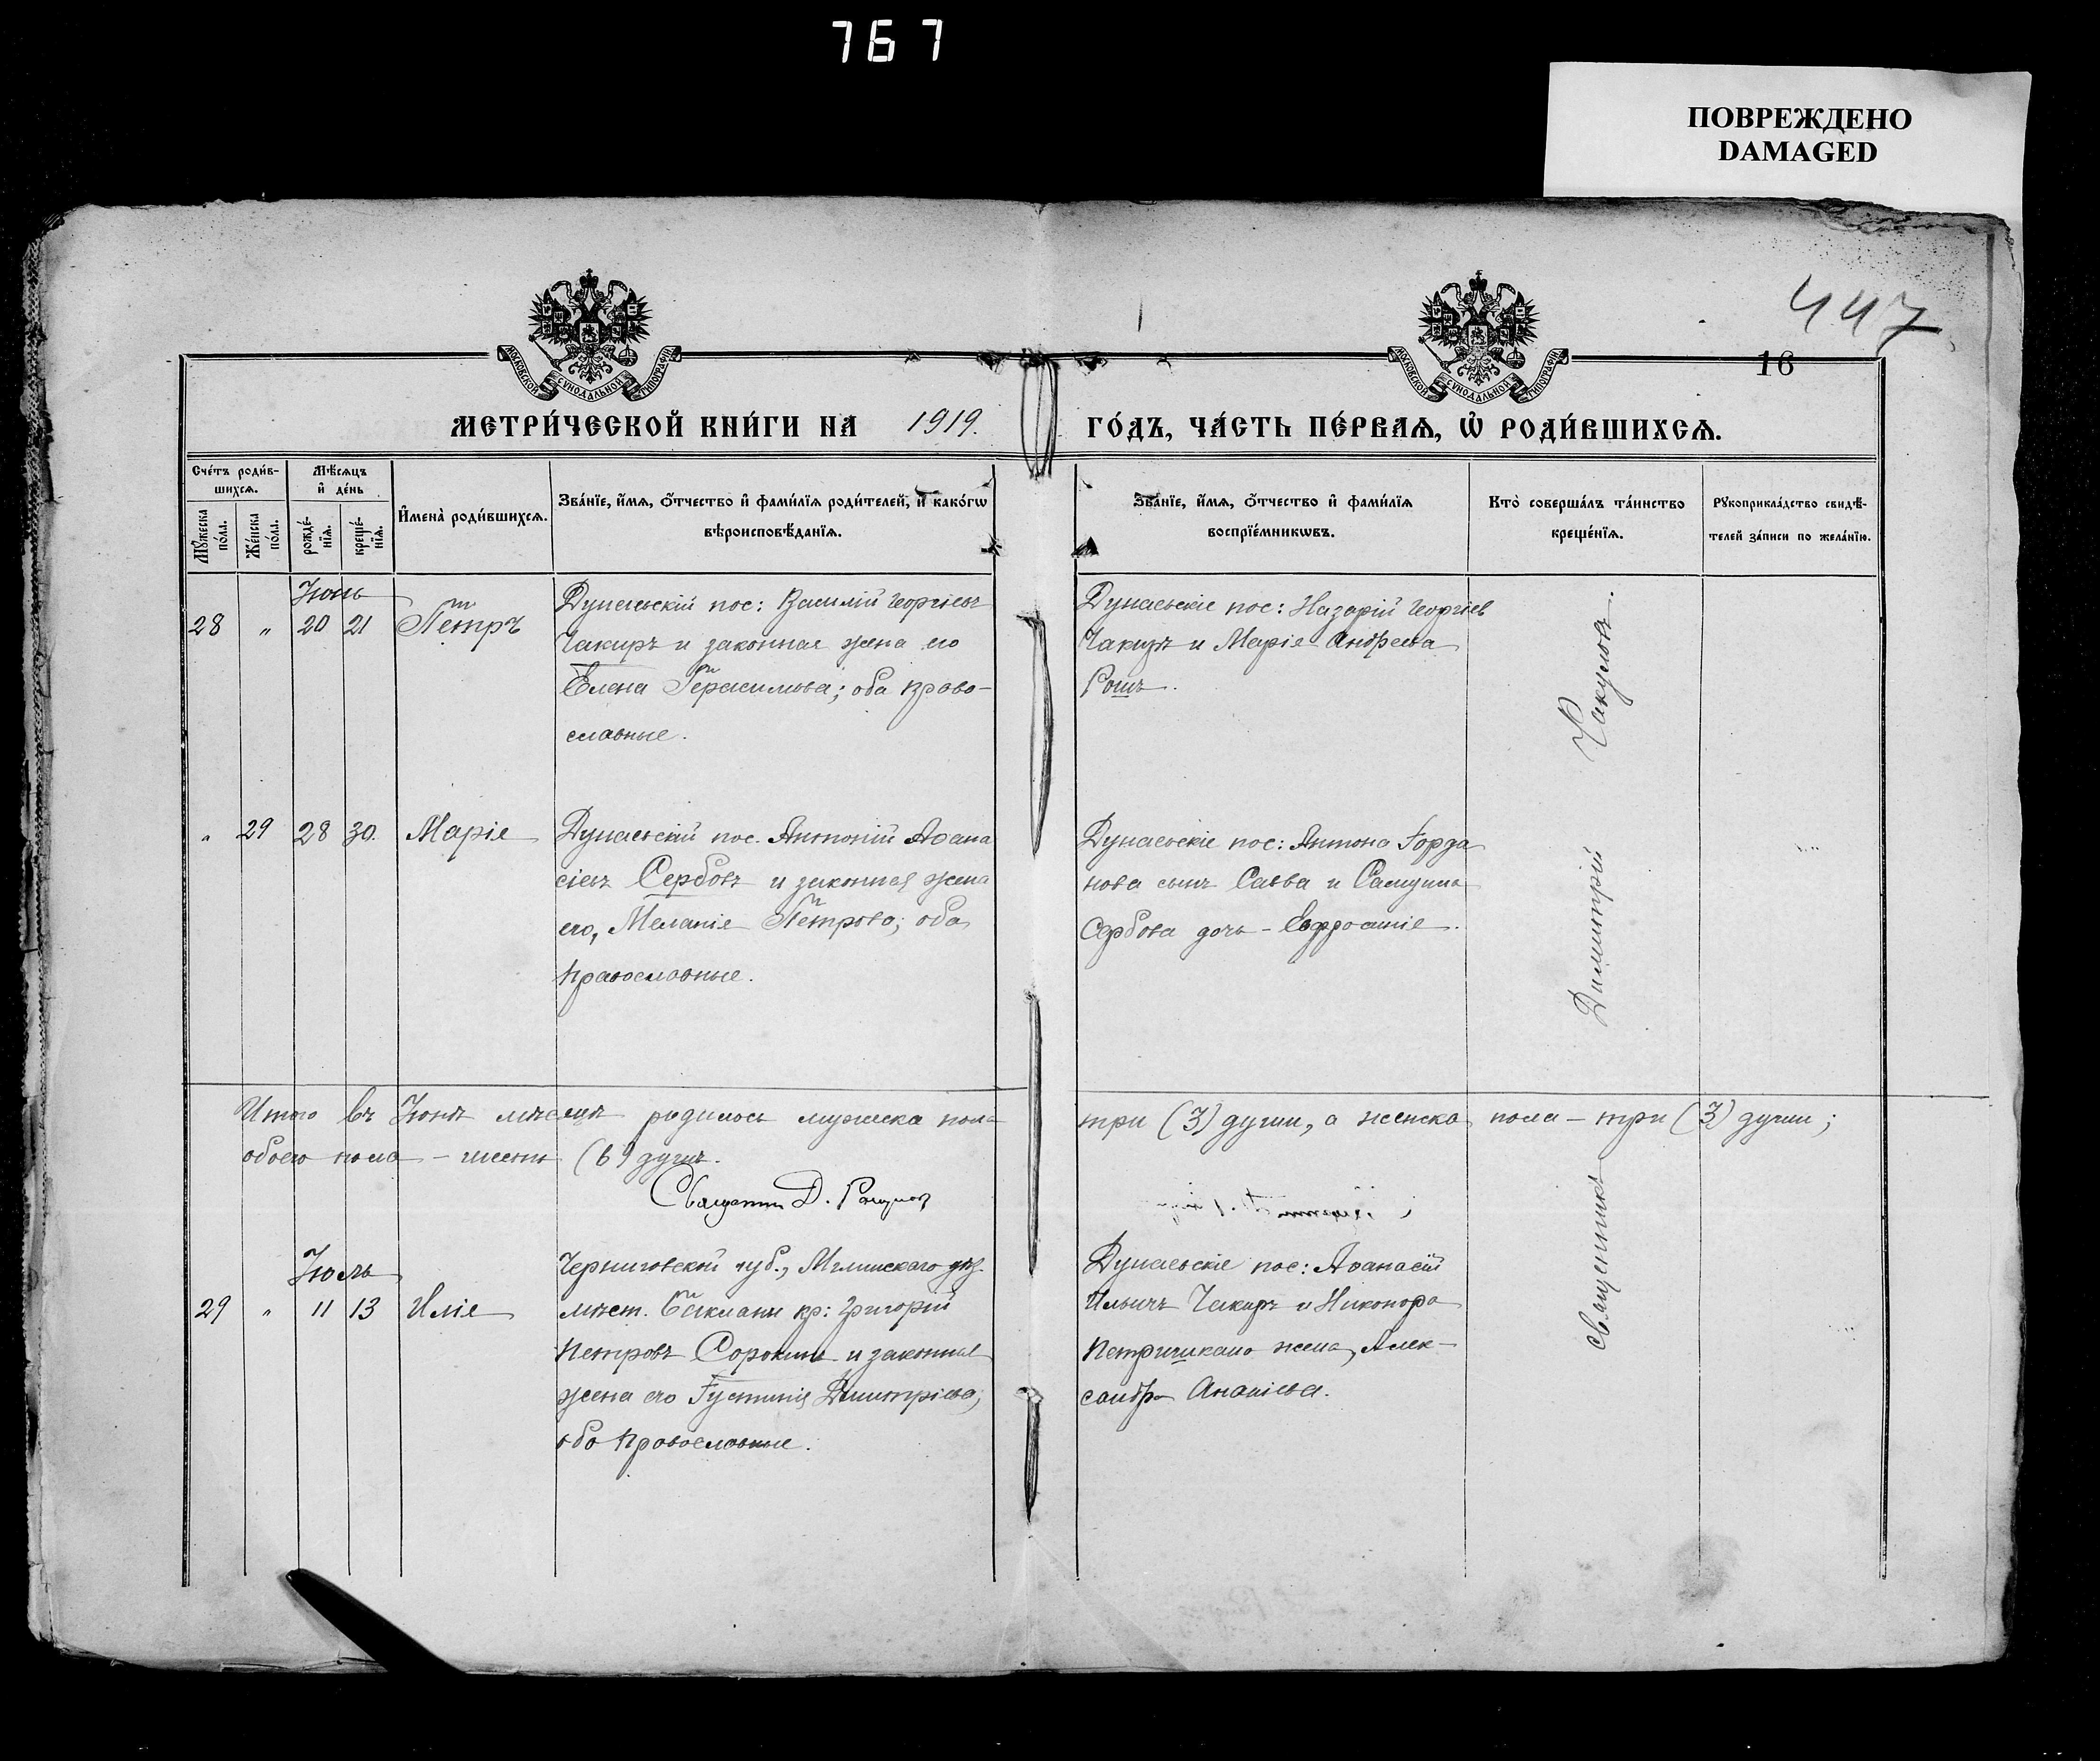 767
ПОВРЕЖДЕНО
DAMAGED
447
16
МОСКОВСКОЙ СѴНОДАЛЬНОЙ ТИПОГРАФІИ
МОСКОВСКОЙ СѴНОДАЛЬНОЙ ТИПОГРАФІИ
МЕТРИ́ЧЕСКОЙ КНИ́ГИ НА 1919. ГО́ДЪ, ЧА́СТЬ ПЕ́РВАѦ, Ѡ҆ РОДИ́ВШИХСѦ.
Сче́тъ роди́в-
шихсѧ.
Мꙋ́жеска по́ла.
Же́нска по́ла.
Мѣ́сѧцъ
и҆ де́нь
рожде́-
нїѧ.
креще́-
нїѧ.
И҆мена̀ роди́вшихсѧ.
Зва́нїе, и҆́мѧ, ѻ҆́тчество и҆ фами́лїѧ роди́телей, и҆ како́гѡ
вѣроисповѣ́данїѧ.
Зва́нїе, и҆́мѧ, ѻ҆́тчество и҆ фами́лїѧ
воспрїе́мникѡвъ.
Кто̀ соверша́лъ та́инство
креще́нїѧ.
Рꙋкоприкла́дство свидѣ́-
телей за́писи по жела́нїю.
Іюнь
28 " 20 21 Петръ
Дунаевскій пос: Василій Георгіевъ
Чакиръ и законная жена его
Елена Герасимова; оба право-
славные.
Дунаевскіе пос: Назарій Георгіев
Чакиръ и Марія Андреева
Рошъ.
" 29 28 30. Марія
Дунаевскій пос. Антоній Аѳана
сіевъ Сербовъ и законная жена
его, Меланія Петрова; оба
православные.
Дунаевскіе пос: Антона Іорда
нова сынъ Савва и Самуила
Сербова дочь - Евфросинія.
Итого въ Іюнѣ мѣсяцѣ родилось мужеска пола три (3) души, а женска пола - три (3) души;
обоего пола - шесть (6) душъ.
Священ. Д.
Іюль
29 " 11 13 Илія
Черниговской губ., Мглинскаго уѣз.
мѣст. Баклани кр: Григорій
Петровъ Сорокинъ и законная
жена его Іустинія Димитріева;
оба православные.
Дунаевскіе пос: Аѳанасій
Ильичъ Чакиръ и Никонора
жена, Алек-
сандра Ананіева.
Священникъ Димитрій